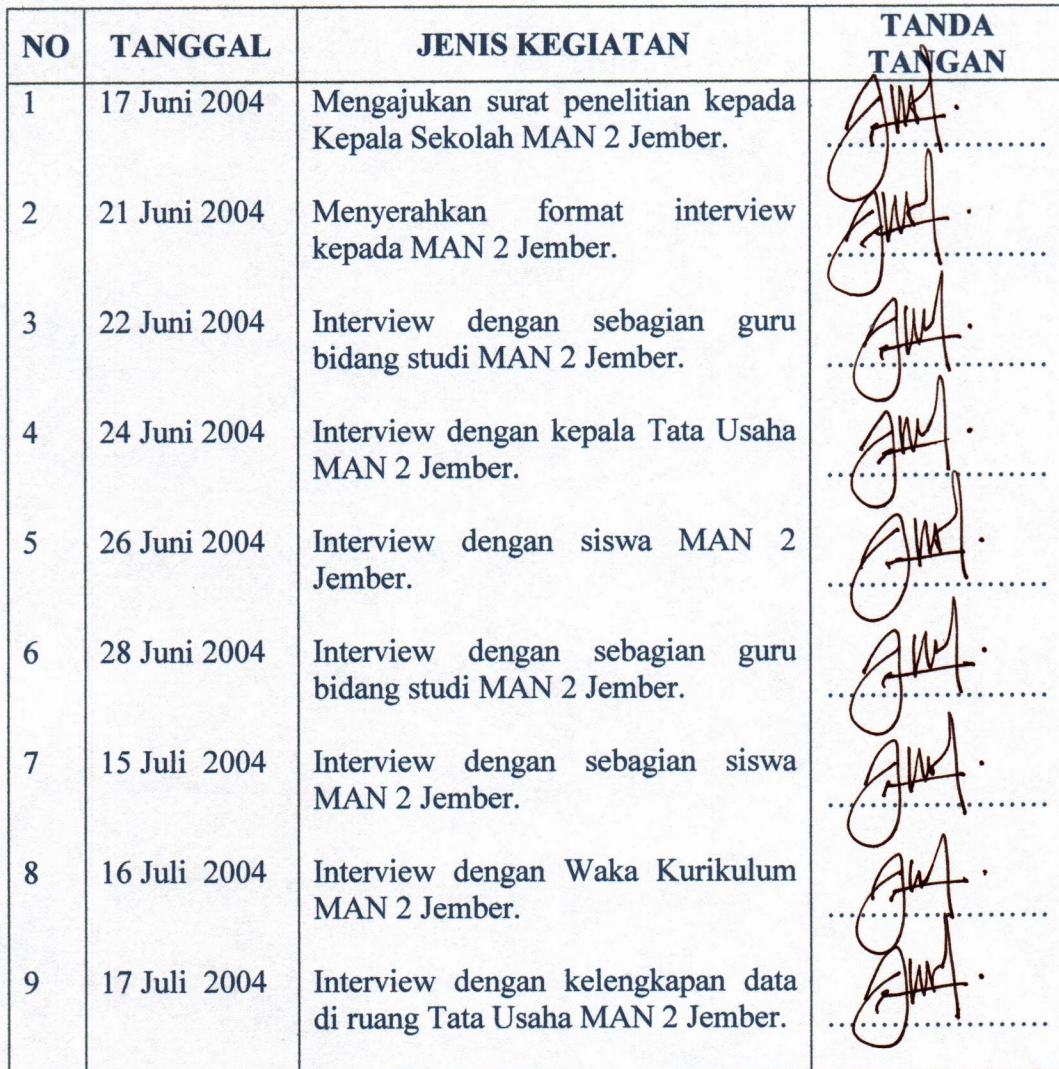 NO TANGGAL JENIS KEGIATAN TANDA TANGAN
1 17 Juni 2004 Mengajukan surat penelitian kepada
Kepala Sekolah MAN 2 Jember.
2 21 Juni 2004 Menyerahkan format interview
kepada MAN 2 Jember.
3 22 Juni 2004 Interview dengan sebagian guru
bidang studi MAN 2 Jember.
4 24 Juni 2004 Interview dengan kepala Tata Usaha
MAN 2 Jember.
5 26 Juni 2004 Interview dengan siswa MAN 2
Jember.
6 28 Juni 2004 Interview dengan sebagian guru
bidang studi MAN 2 Jember.
7 15 Juli 2004 Interview dengan sebagian siswa
MAN 2 Jember.
8 16 Juli 2004 Interview dengan Waka Kurikulum
MAN 2 Jember.
9 17 Juli 2004 Interview dengan kelengkapan data
di ruang Tata Usaha MAN 2 Jember.